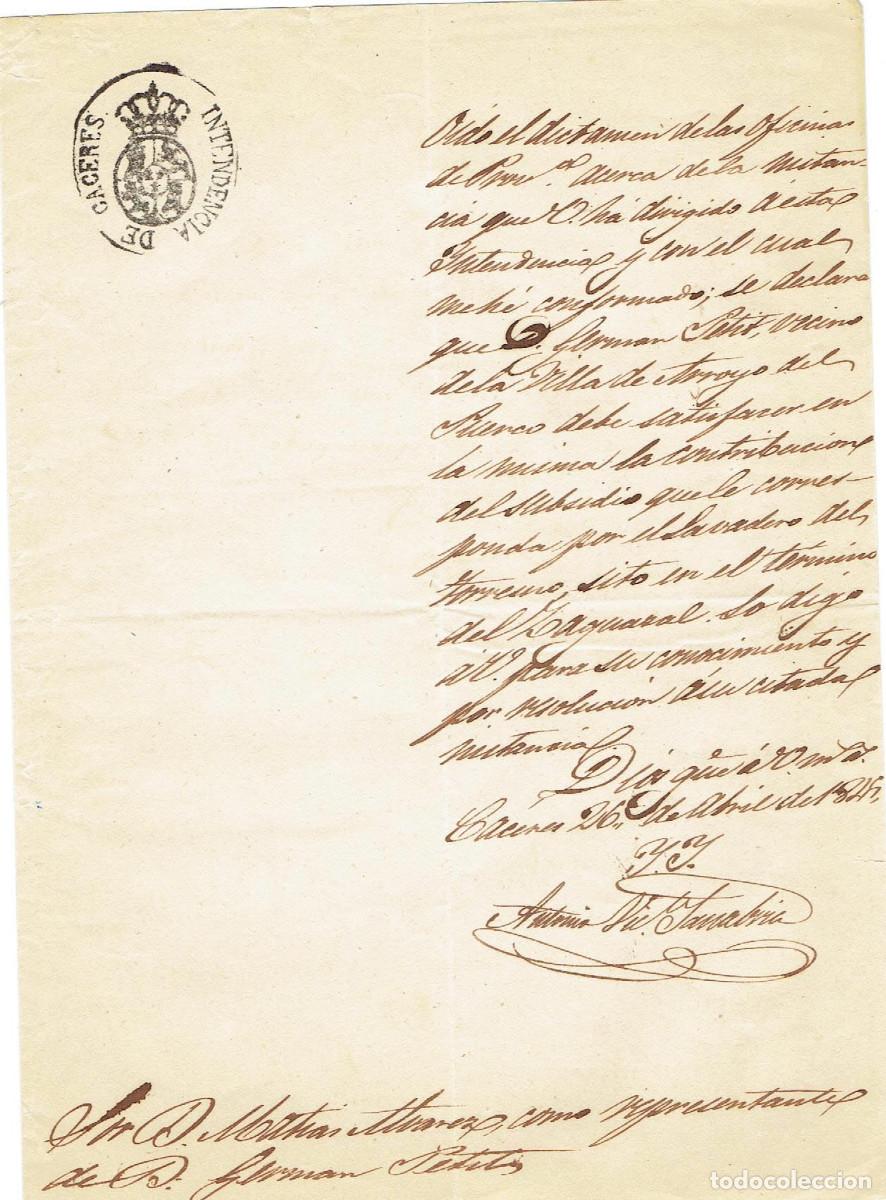 INTENDENCIA DE CACERES
Oido el dictamen de las Oficinas
de Provᵃˡ acerca de la instan-
cia que V. há dirigido á esta
Intendencia y con el cual
me hé conformado; se declara
que D. German Petit, vecino
de la Villa de Arroyo del
Puerco debe satisfacer en
la misma la contribucion
del subsidio que le corres-
ponda por el lavadero del
torresno, sito en el termino
del Zaguazal. Lo digo
á V. para su conocimiento y
por resolucion á su citada
instancia.
Dios gue á V. m. a.
Caceres 26,, de Abril de
Y. Y.
Antonio Vic. Sanabria
Sor D. Matias Alvarez, como representante
de D. German Petit
todocoleccion